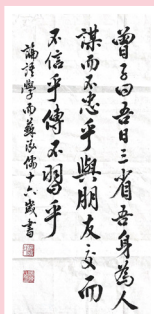 曾子曰吾日三省吾身為人
謀而不忠乎與朋友交而
不信乎傳不習乎
論語學而蘇泓儒十六歲書